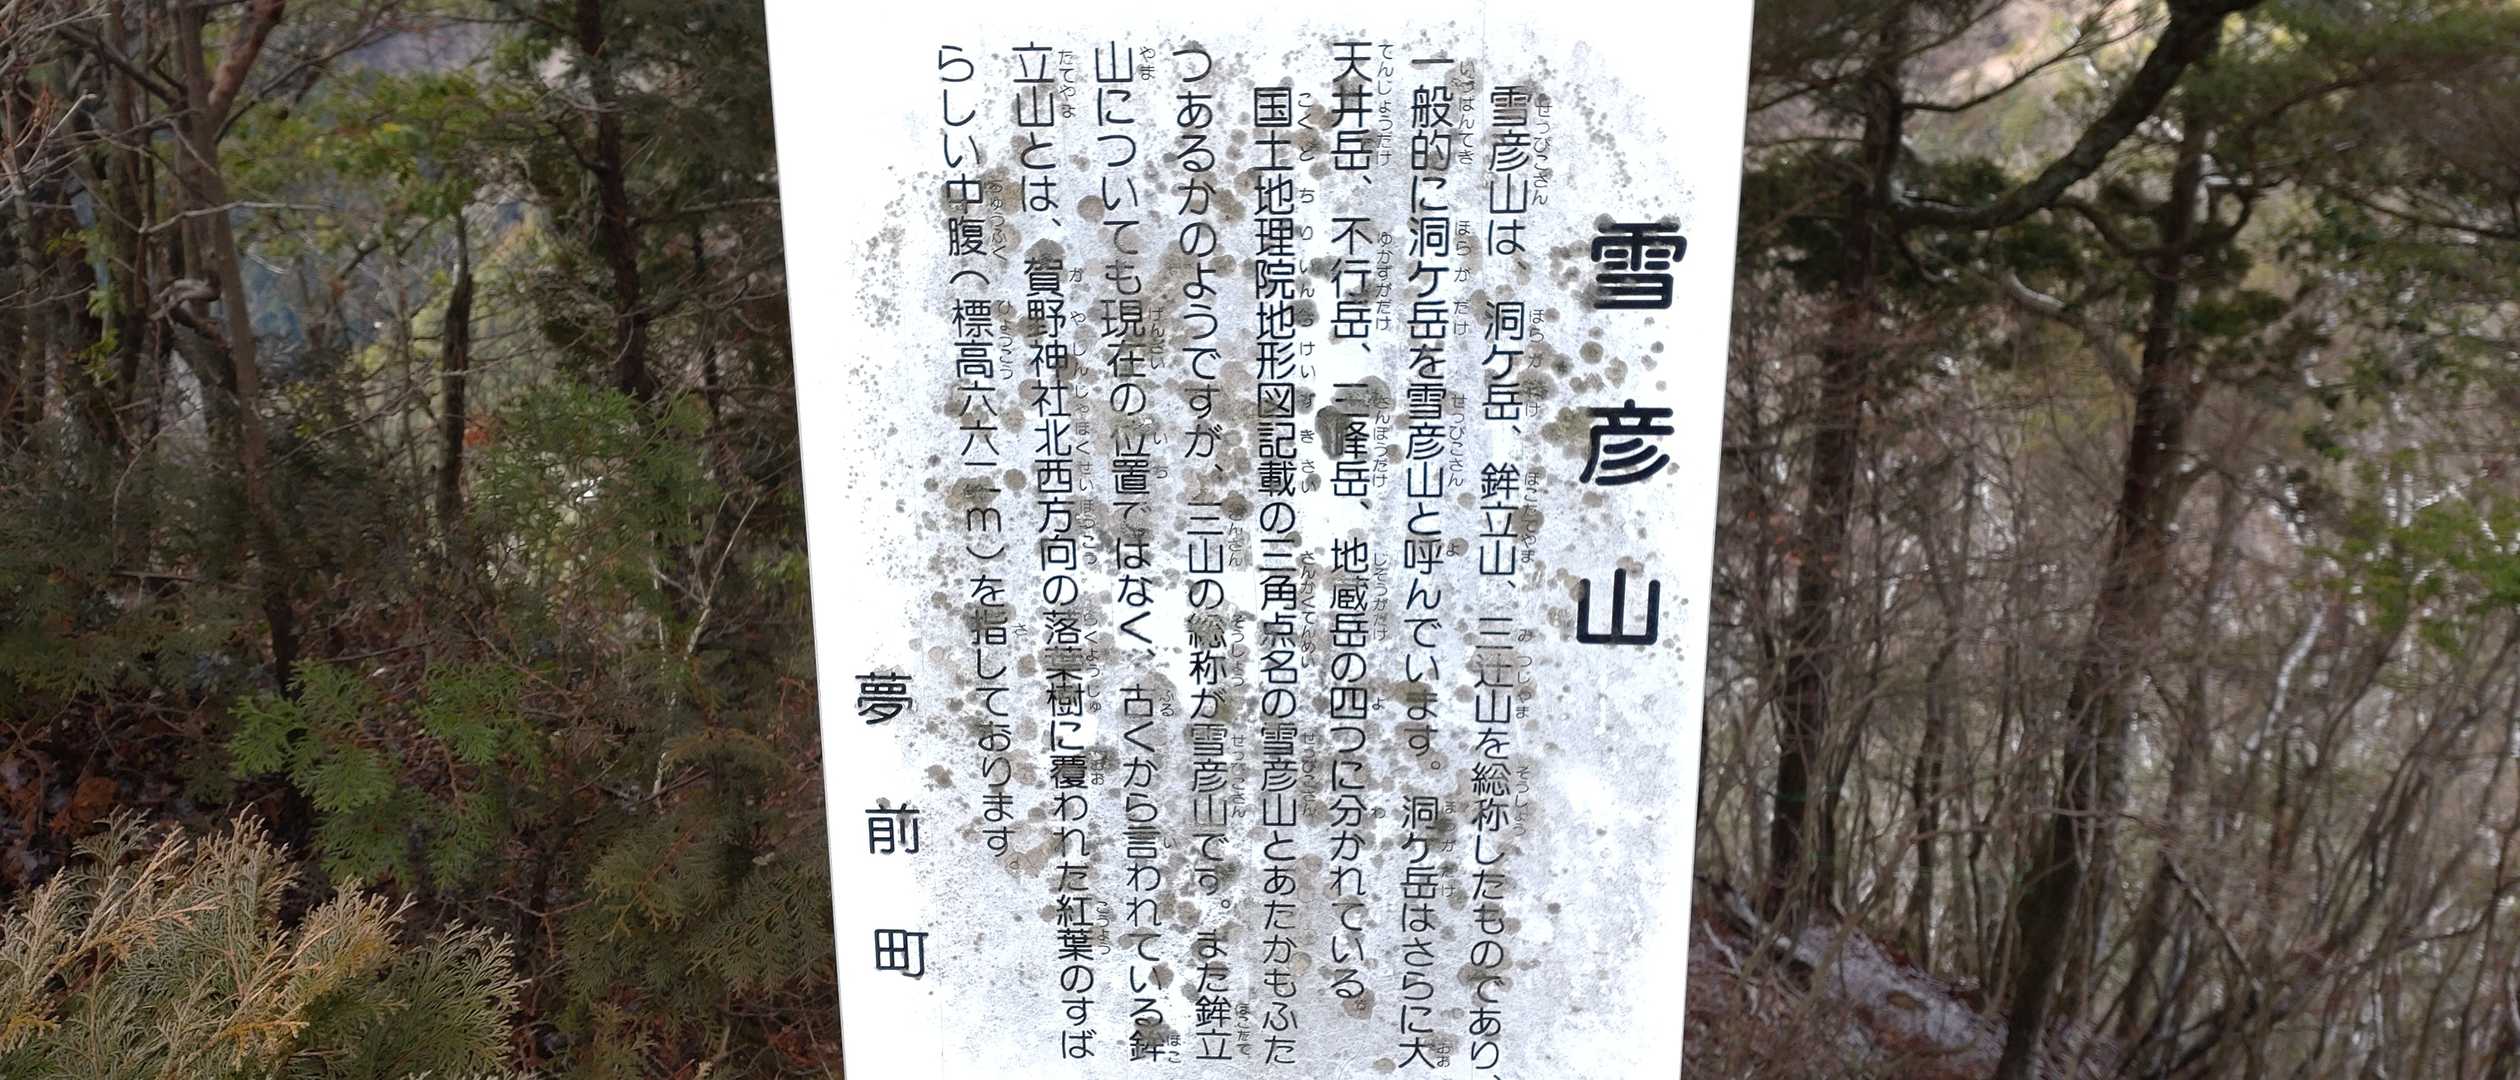 雪彦山
雪彦山は、洞ケ岳、鉾立山、三辻山を総称したものであり、
一般的に洞ケ岳を雪彦山と呼んでいます。洞ケ岳はさらに大
天井岳、不行岳、三峰岳、地蔵岳の四つに分かれている。
国土地理院地形図記載の三角点名の雪彦山とあたかもふた
つあるかのようですが、三山の総称が雪彦山です。また鉾立
山についても現在の位置ではなく、古くから言われている鉾
立山とは、賀野神社北西方向の落葉樹に覆われた紅葉のすば
らしい中腹(標高六六一m)を指しております。
夢前町